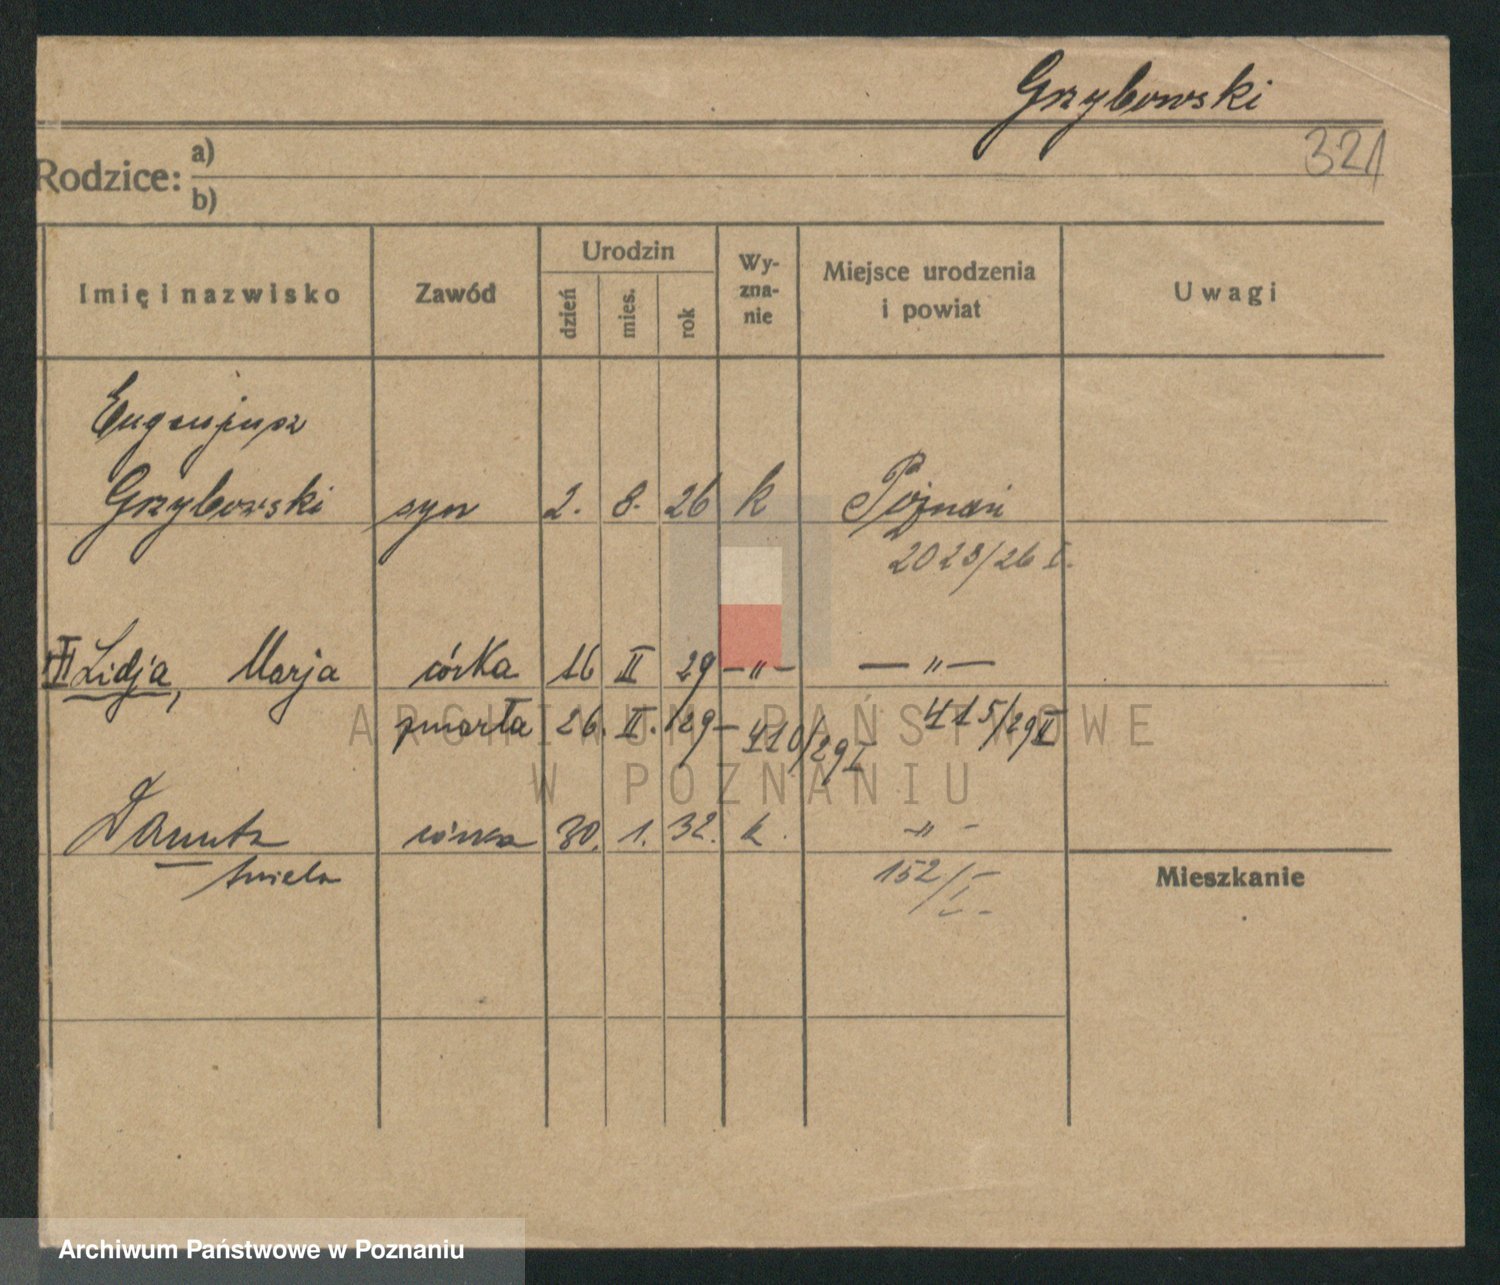 Grzybowski
321
Rodzice: a)
b)
Imię i nazwisko Zawód Urodzin dzień mies. rok Wy-zna-nie Miejsce urodzenia i powiat Uwagi
Eugenjusz
Grzybowski syn 2. 8. 26 k Poznań
2023/26 I.
Lidja, Marja córka 16 II 29 —„— —„—
zmarła 26. II. 29 — 410/29 I 415/29 II
ARCHIWUM PAŃSTWOWE
W POZNANIU
Danuta córka 30. 1. 32. k. —„—
Aniela 152/I
Mieszkanie
Archiwum Państwowe w Poznaniu